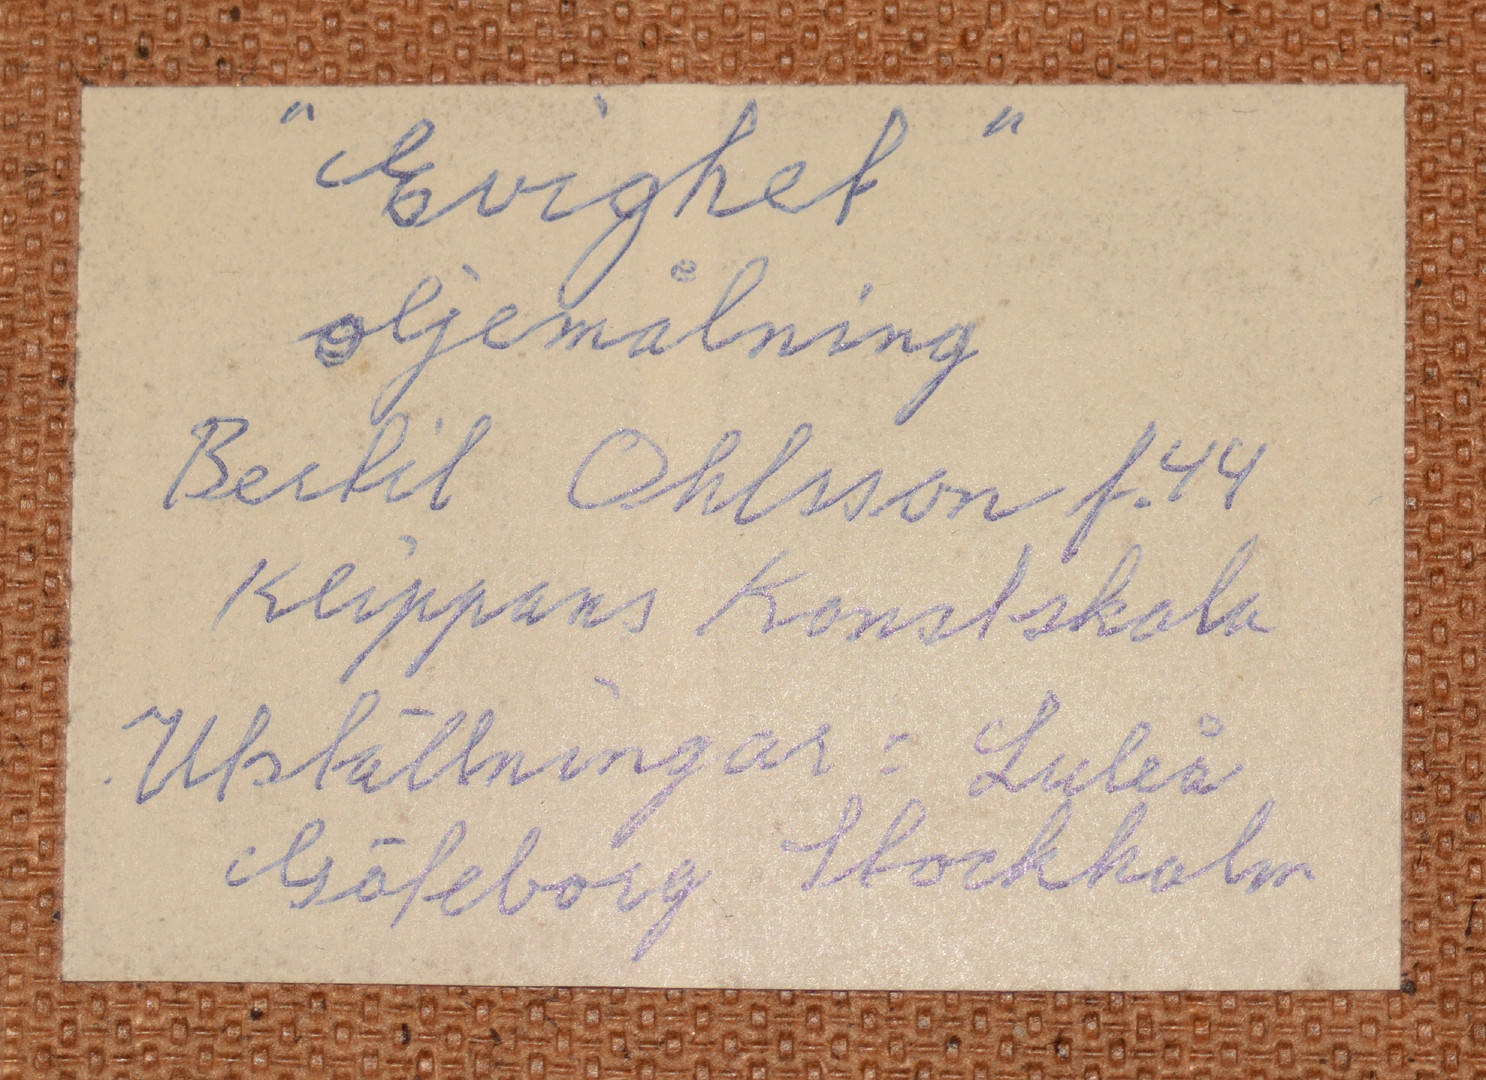 "Evighet"
oljemålning
Bertil Ohlsson f.44
Klippans Konstskola
Utställningar: Luleå
Göteborg Stockholm